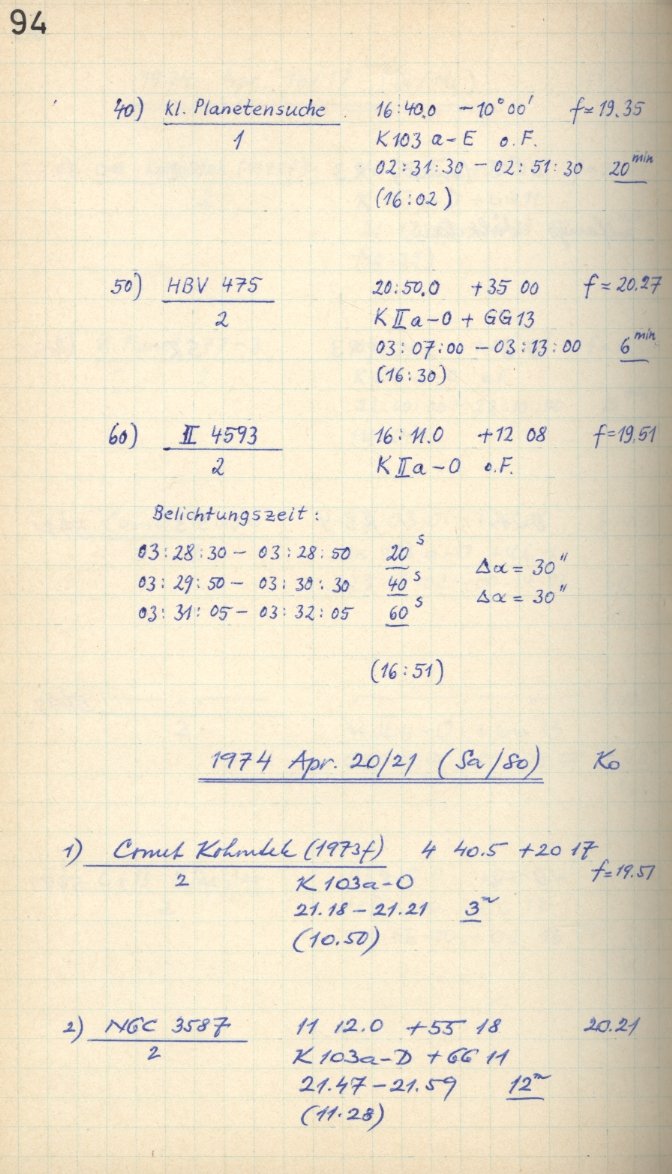 94
40) Kl. Planetensuche 16:40.0 -10°00' f=19.35
1 K103 a-E o.F.
02:31:30 - 02:51:30 20 min
(16:02)
50) HBV 475 20:50.0 +35 00 f=20.27
2 K IIa-O + GG13
03:07:00 - 03:13:00 6 min
(16:30)
60) II 4593 16:11.0 +12 08 f=19.51
2 K IIa-O o.F.
Belichtungszeit:
03:28:30 - 03:28:50 20 s
Δα = 30"
03:29:50 - 03:30:30 40 s
Δα = 30"
03:31:05 - 03:32:05 60 s
(16:51)
1974 Apr. 20/21 (Sa/So) Ko
1) Comet Kohoutek (1973f) 4 40.5 +20 17
f=19.51
2 K 103a-O
21.18-21.21 3 m
(10.50)
2) NGC 3587 11 12.0 +55 18 20.21
2 K 103a-D + GG 11
21.47-21.59 12 m
(11.28)